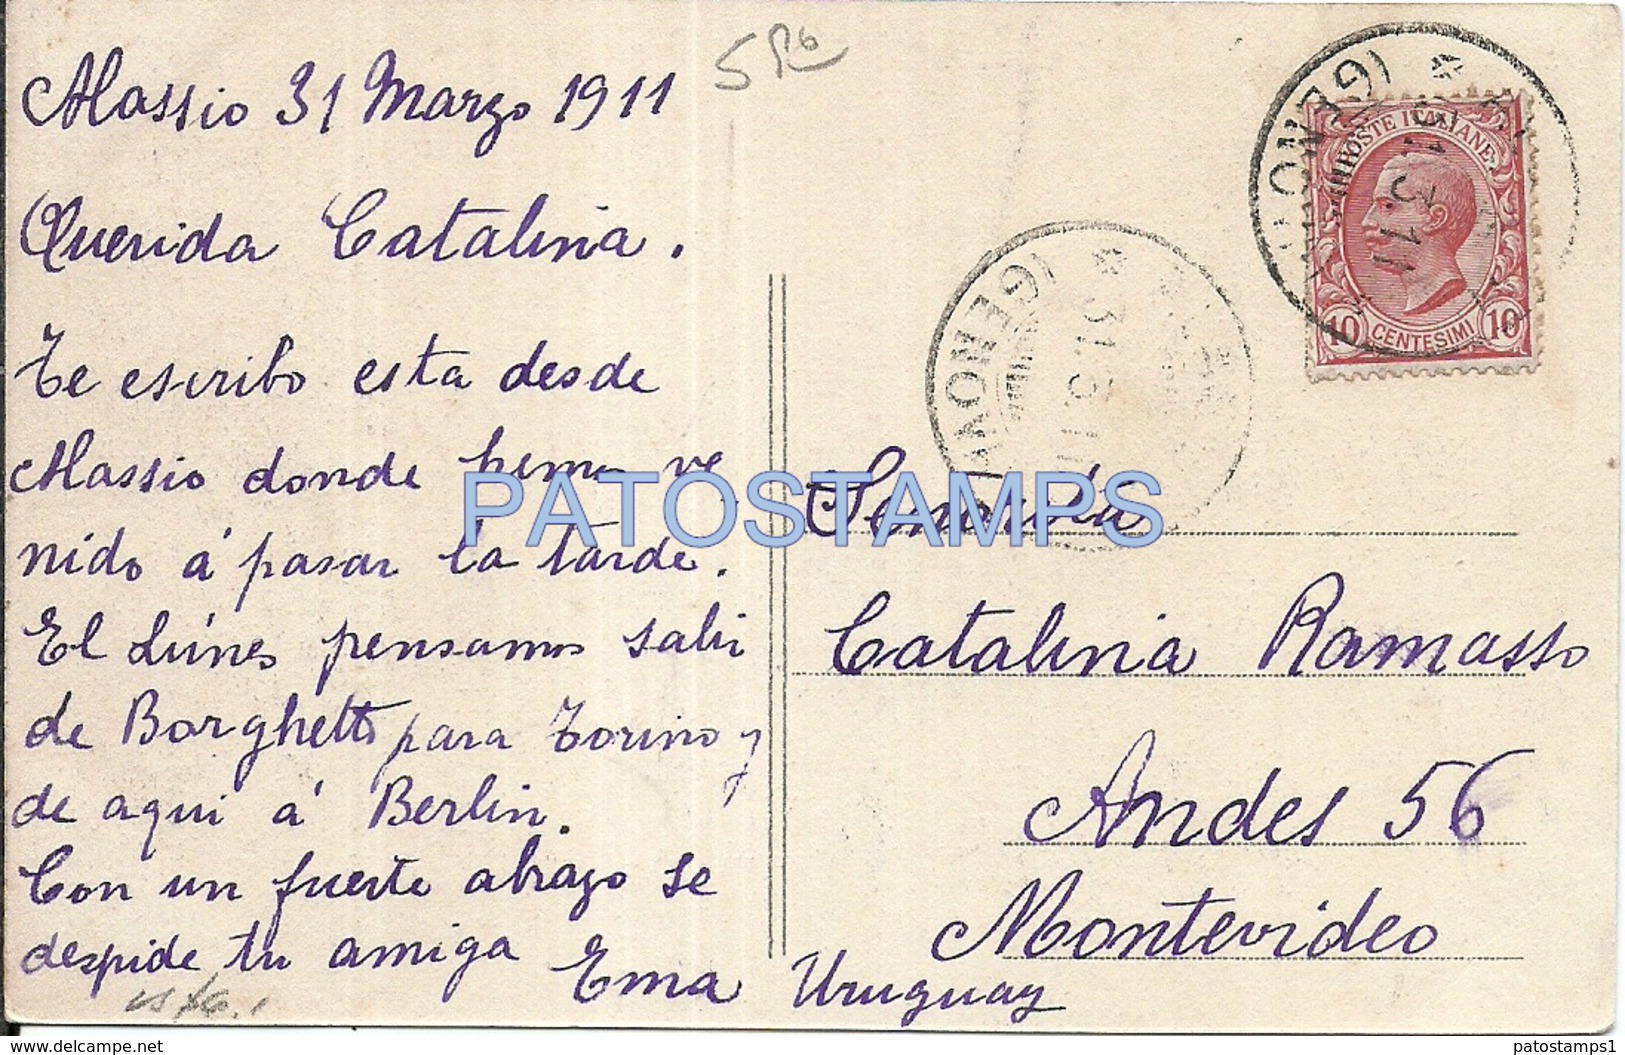 Alassio 31 Marzo 1911
Querida Catalina.
Te escribo esta desde
Alassio donde hemos ve
nido á pasar la tarde.
El Lúnes pensamos salir
de Borghetto para Torino y
de aqui á Berlin.
Con un fuerte abrazo se
despide tu amiga Ema
Señorita
Catalina Ramasso
Andes 56
Montevideo
Uruguay
POSTE ITALIANE
10 CENTESIMI 10
(GENOVA)
31.3.11
(GENOVA)
31.3.11
PATOSTAMPS
www.delcampe.net
patostamps1